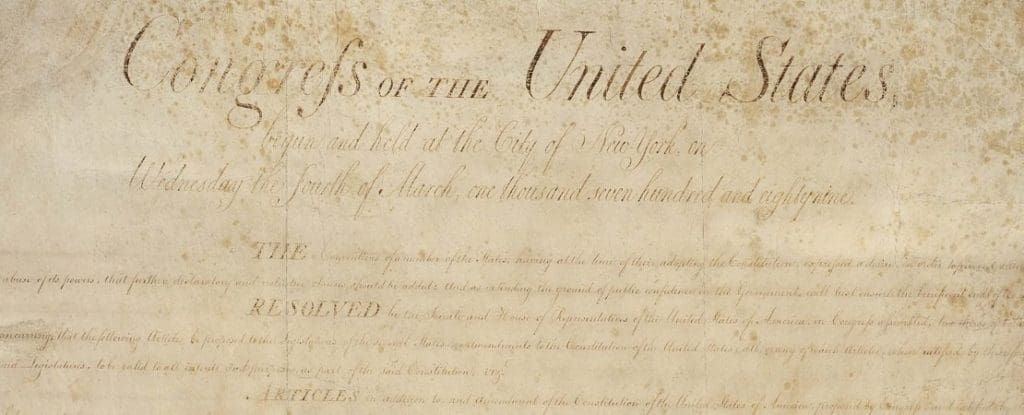 Congreſs OF THE United States,
begun and held at the City of New York, on
Wednesday the fourth of March, one thousand seven hundred and eighty nine.
THE Conventions of a number of the States, having at the time of their adopting the Constitution, expressed a desire, in order to prevent
abuse of its powers, that further declaratory and restrictive clauses should be added: And as extending the ground of public confidence in the Government, will best ensure the beneficent ends of
RESOLVED by the Senate and House of Representatives of the United States of America, in Congress assembled, two thirds of
concurring, that the following Articles be proposed to the Legislatures of the several States, as amendments to the Constitution of the United States, all, or any of which Articles, when ratified by three fourths
said Legislatures, to be valid to all intents and purposes, as part of the said Constitution; viz.
ARTICLES in addition to, and Amendment of the Constitution of the United States of America, proposed by Congress and ratified by